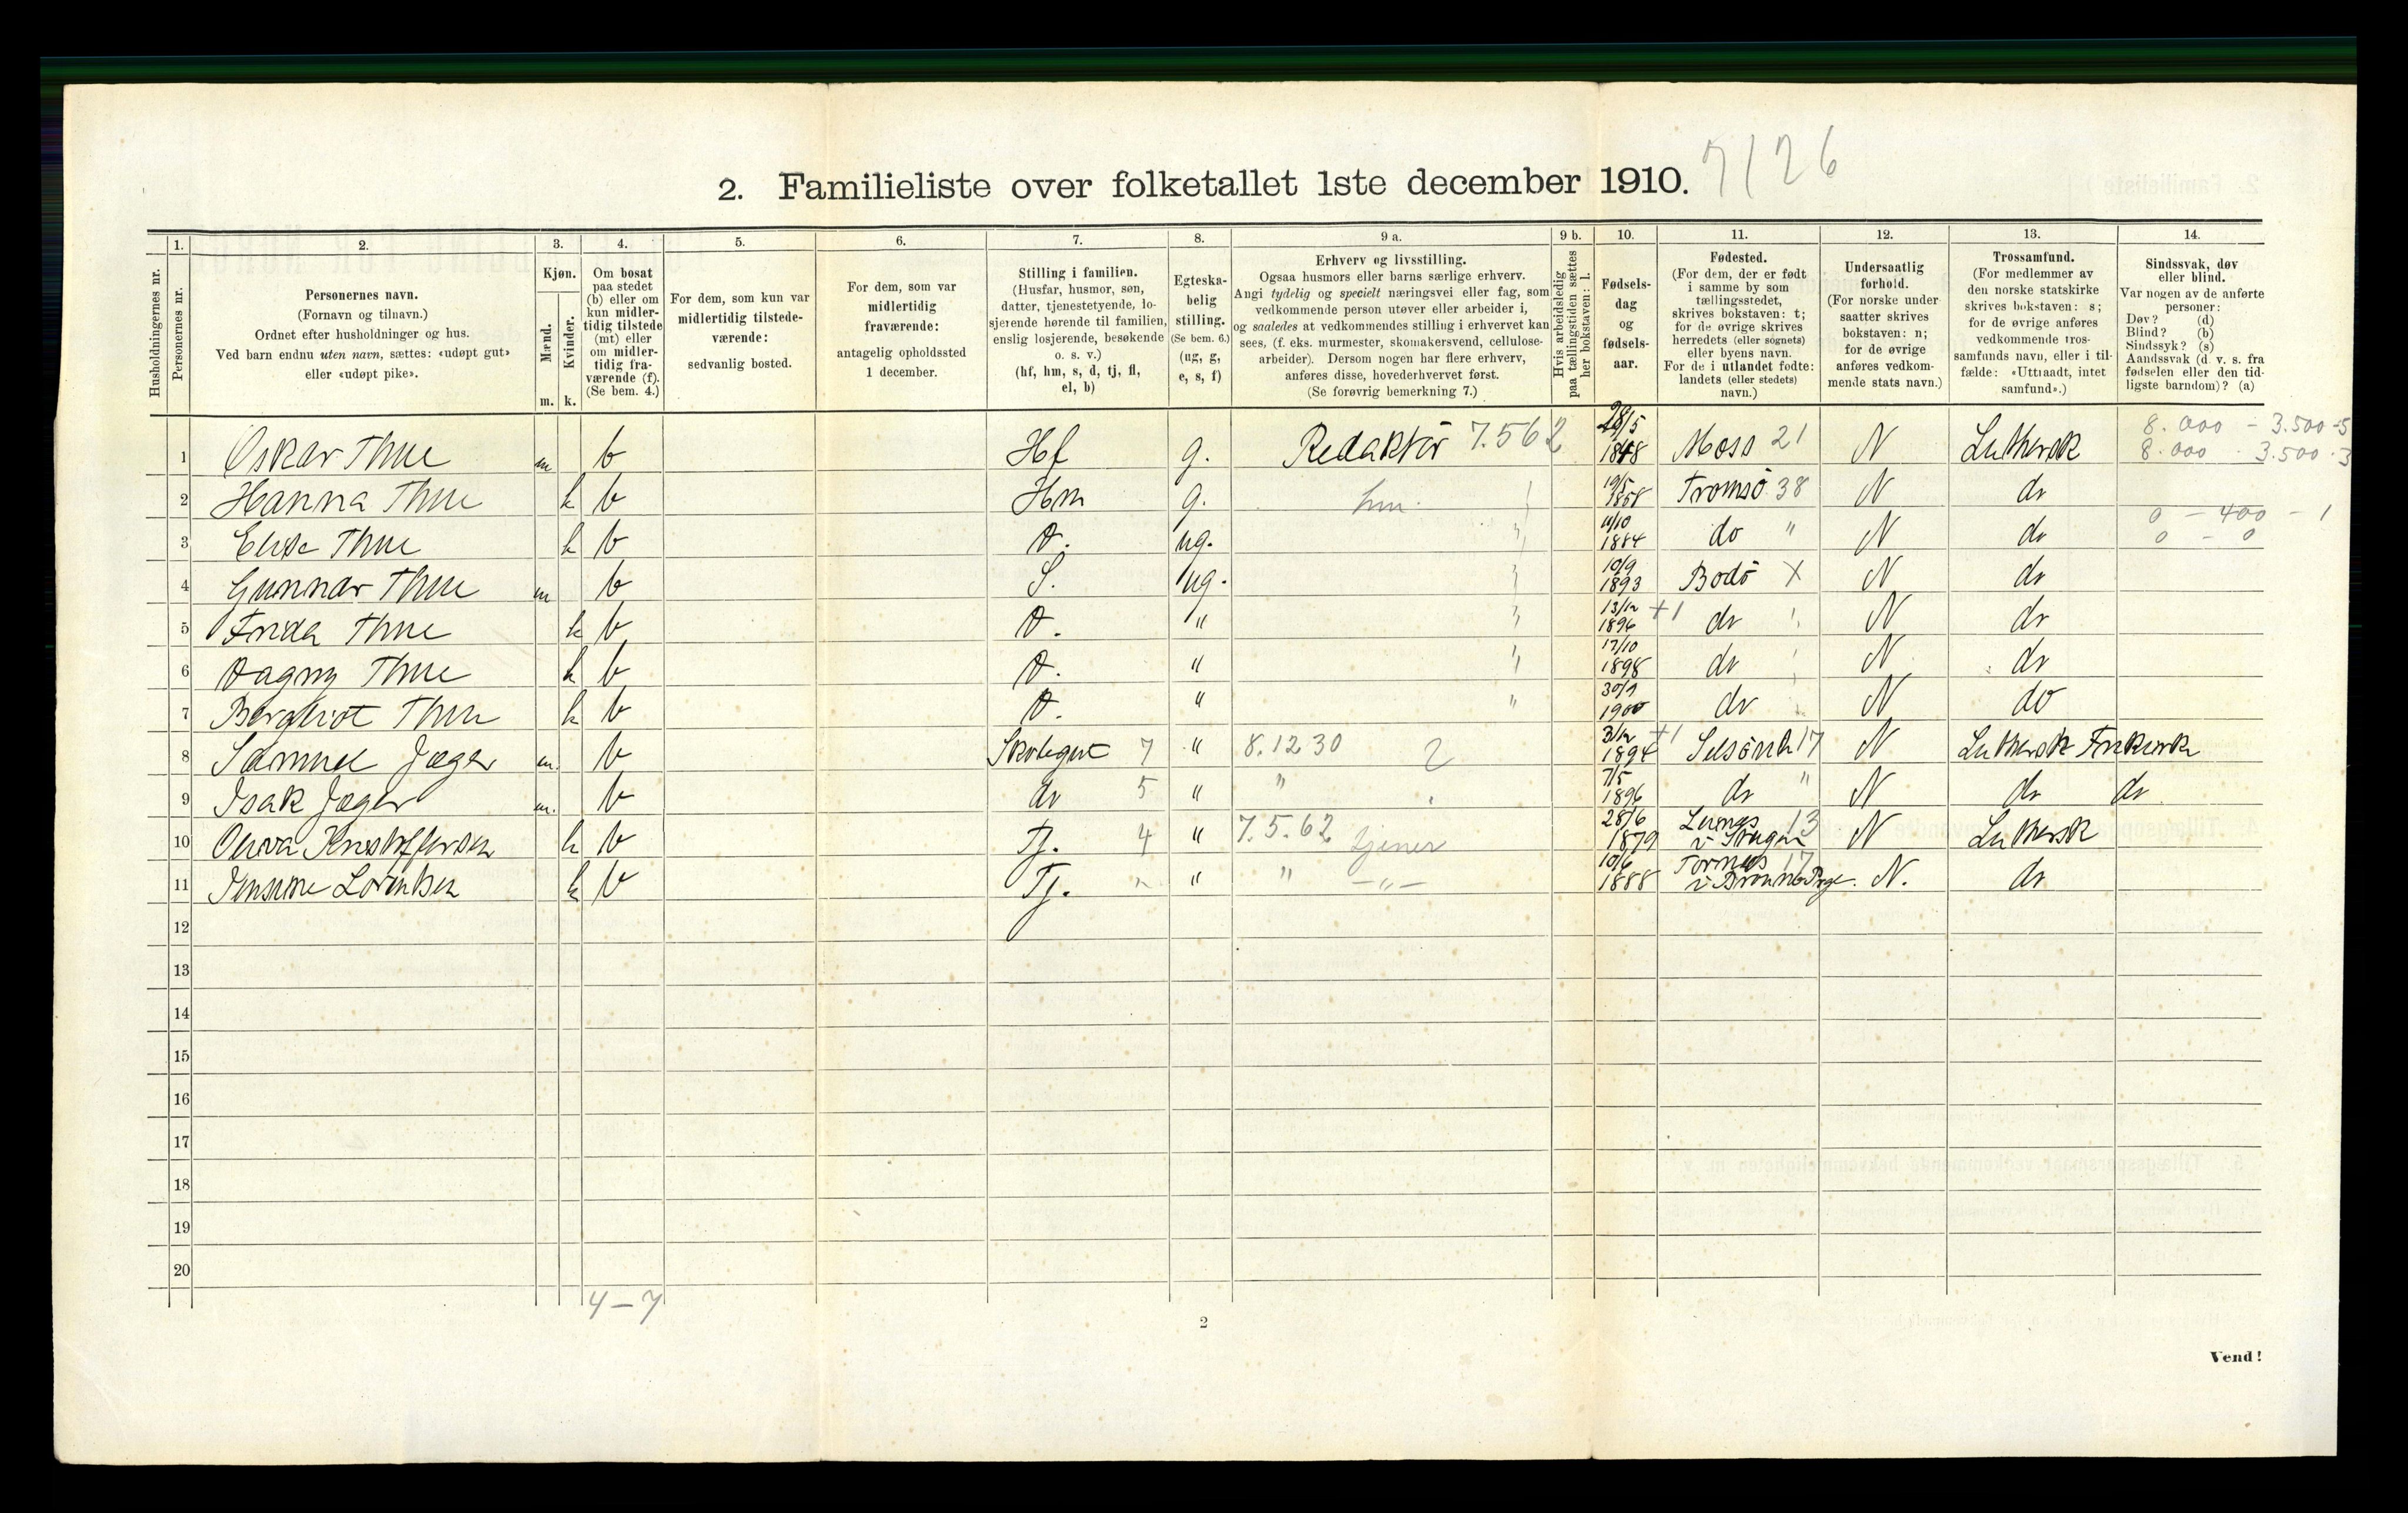 2. Familieliste over folketallet 1ste december 1910. 7/26
Husholdningernes nr.
1. Personernes nr.
2. Personernes navn.
(Fornavn og tilnavn.)
Ordnet efter husholdninger og hus.
Ved barn endnu uten navn, sættes: «udøpt gut»
eller «udøpt pike».
3. Kjøn.
Mænd. Kvinder.
m. k.
4. Om bosat
paa stedet
(b) eller om
kun midler-
tidig tilstede
(mt) eller
om midler-
tidig fra-
værende (f).
(Se bem. 4.)
5. For dem, som kun var
midlertidig tilstede-
værende:
sedvanlig bosted.
6. For dem, som var
midlertidig
fraværende:
antagelig opholdssted
1 december.
7. Stilling i familien.
(Husfar, husmor, søn,
datter, tjenestetyende, lo-
sjerende hørende til familien,
enslig losjerende, besøkende
o. s. v.)
(hf, hm, s, d, tj, fl,
el, b)
8. Egteska-
belig
stilling.
(Se bem. 6.)
(ug, g,
e, s, f)
9 a. Erhverv og livsstilling.
Ogsaa husmors eller barns særlige erhverv.
Angi tydelig og specielt næringsvei eller fag, som
vedkommende person utøver eller arbeider i,
og saaledes at vedkommendes stilling i erhvervet kan
sees, (f. eks. murmester, skomakersvend, cellulose-
arbeider). Dersom nogen har flere erhverv,
anføres disse, hovederhvervet først.
(Se forøvrig bemerkning 7.)
9 b. Hvis arbeidsledig
paa tællingstiden sættes
her bokstaven: l.
10. Fødsels-
dag
og
fødsels-
aar.
11. Fødested.
(For dem, der er født
i samme by som
tællingsstedet,
skrives bokstaven: t;
for de øvrige skrives
herredets (eller sognets)
eller byens navn.
For de i utlandet fødte:
landets (eller stedets)
navn.)
12. Undersaatlig
forhold.
(For norske under-
saatter skrives
bokstaven: n;
for de øvrige
anføres vedkom-
mende stats navn.)
13. Trossamfund.
(For medlemmer av
den norske statskirke
skrives bokstaven: s;
for de øvrige anføres
vedkommende tros-
samfunds navn, eller i til-
fælde: «Uttraadt, intet
samfund».)
14. Sindssvak, døv
eller blind.
Var nogen av de anførte
personer:
Døv? (d)
Blind? (b)
Sindssyk? (s)
Aandssvak (d. v. s. fra
fødselen eller den tid-
ligste barndom)? (a)
8.000 - 3.500-5
1 Oskar Thue m b Hf g. Redaktör 7.562 28/5 1848 Moss 21 N Luthersk 8.000 - 3.500-3
2 Hanna Thue k b Hm g. hm. 19/5 1858 Tromsö 38 N do
0 - 400 - 1
3 Elise Thue k b D. ug. " 11/10 1884 do " N do 0 - 0
4 Gunnar Thue m b S. ug. " 10/9 1893 Bodö X N do
5 Frida Thue k b D. " " 13/12 1896 +1 do " N do
6 Dagny Thue k b D. " " 17/10 1898 do " N do
7 Bergliot Thue k b D. " " 30/9 1900 do " N do
8 Samuel Jæger m. b Skolegut 7 " 8.12 30 2 3/12 1894 +1 17 N Luthersk Frikirke
9 Isak Jæger m. b do 5 " " 7/5 1896 do " N do do
10 Kristoffersen k b Tj. 4 " 7.5.62 tjener 28/6 1879 13 N Luthersk
11 Jensine Lorentsen k b Tj. " " " -"- 10/6 1888 17 N. do
12
13
14
15
16
17
18
19
20
4-7
2
Vend!